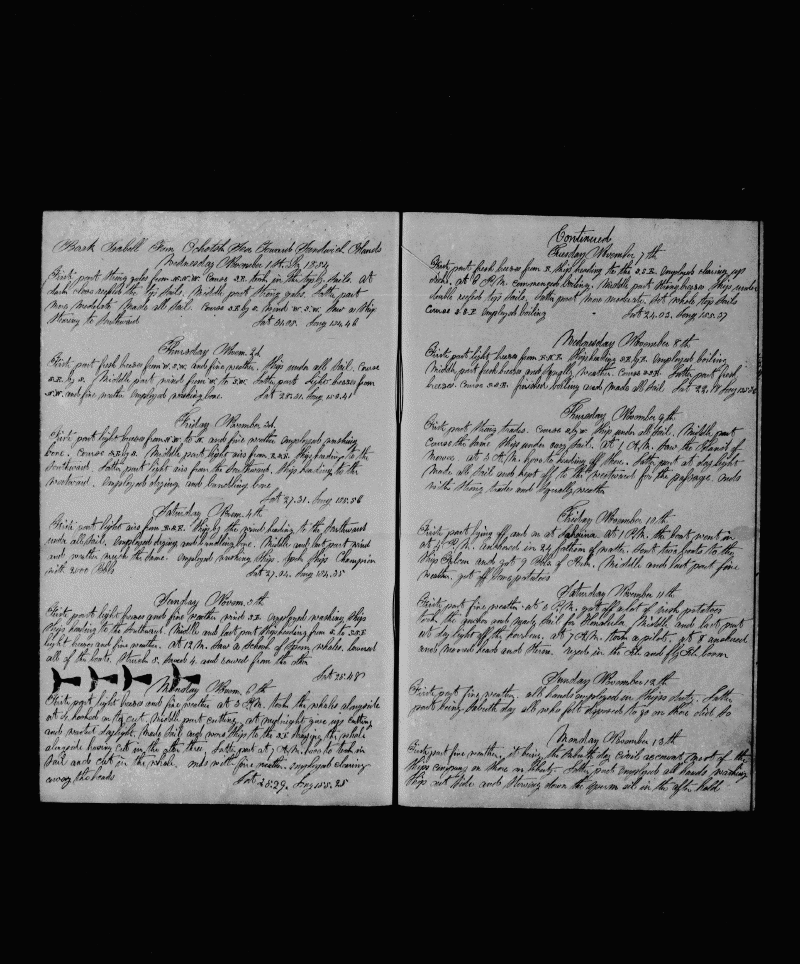 Bark Isabell From Ochotsk Sea Towards Sandwich Islands
Wednesday November 1st 1854
First part strong gales from W.N.W. Course S.E. took in the top Sails. At
dark close reefed the top Sails. Middle part strong gales. Latter part
more moderate made all Sail. Course S.E. by E. wind W.S.W. Saw a Ship
Steering to Southward Lat 31.08. Long 154.46
Thursday Novem. 2d
First part fresh breeze from W.S.W. and fine weather. Ship under all Sail. Course
S.E. by S. Middle part wind from W. to S.W. Latter part light breeze from
S.W. and fine weather Employed washing bone. Lat 28.31. Long
Friday November 3d
First part light breeze from N.W. to N. and fine weather employed washing
bone. Course Middle part light airs from Ship heading to the
Southward. Latter part light airs from the Southward. Ship heading to the
westward. Employed drying and bundling bone.
Lat 27.31. Long 155.56
Saturday Novem. 4th
First part light airs from Ship by the wind heading to the Southward
under all Sail. Employed drying and bundling bone. Middle and last part wind
and weather much the same. Employed washing Ship. Spoke Ship Champion
with 2500 Bbls Lat 27.04. Long 154.35
Sunday Novem. 5th
First part light breeze and fine weather wind S.E. employed washing Ship
Ship heading to the Southward. Middle and last part Ship heading from S. to
light breeze and fine weather. At 12 M. Saw a School of Sperm whales. lowered
all of the boats. Struck 5. Saved 4. and sawed from the other
Lat 25.48
Monday Novem. 6th
First part light breeze and fine weather at 3 P.M. took the whales alongside
at 4 hooked on to cut. Middle part cutting. at midnight gave up cutting
and waited daylight. Made Sail and wore Ship to the keeping the whale
alongside having cut in the other three. Latter part at 7 A.M. hove to took in
Sail and cut in the whale. ends with fine weather. employed clearing
away the heads
Lat 25.29. Long 155.25
Continued
Tuesday November 7th
First part fresh breeze from E. Ship heading to the S.S.E. Employed clearing up
decks. at 6 P.M. commenced boiling. Middle part strong breeze Ship under
double reefed top Sails. Latter part more moderate. Set whole top Sails
Course Employed boiling Lat 24.03. Long 155.37
Wednesday November 8th
First part light breeze from Ship heading S.E. by S. Employed boiling
Middle part fresh breeze and squally weather. Course S.S.E. Latter part fresh
breeze. Course S.S.E. finished boiling and made all Sail Lat 22.
Thursday November 9th
First part strong trades. Course S. by W. Ship under all Sail. Middle part
Course the same Ship under easy Sail. At 1 A.M. Saw the Island of
Mowee. at 3 A.M. hove to heading off Shore. Latter part at day light
made all Sail and kept off to the westward for the passage. ends
with Strong trades and squally weather
Friday November 10th
First part lying off and on at Lahaina. At 1 P.M. the boat went in
at 4 P.M. anchored in 24 fathom of water. Sent two boats to the
Ship Falcon and got 9 Bbls of Middle and last part fine
weather. got off Some potatoes
Saturday November 11th
First part fine weather. at 5 P.M. got off a lot of irish potatoes
took the anchor and made Sail for Honolulu. Middle and last part
at day light off the harbour. at 7 A.M. took a pilot. at 8 anchored
and moored heads and Stern. rigged in the Jib and flying Jib boom
Sunday November 12th
First part fine weather. all hands employed in Ships duty. Latter
part being Sabbath day all who felt disposed to go on Shore did So
Monday November 13th
First part fine weather. it being the Sabbath day Civil account most of the
Ships company on Shore on liberty. Latter part employed all hands washing
Ship out Side and Stowing down the Sperm oil in the after hold